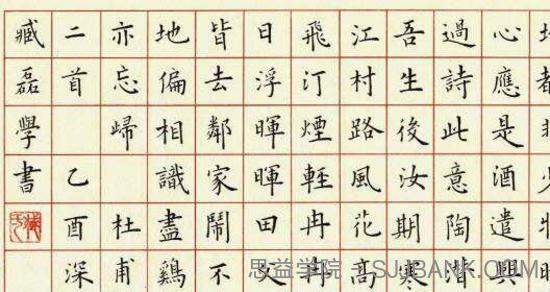 心應是酒遣興
過詩此意陶潛
吾生後汝期寒
江村路風花高
飛汀煙輕冉冉
日浮暉暉田父
皆去鄰家鬧不
地偏相識盡鷄
亦忘歸 杜甫
二首 乙酉深
臧磊學書
思益学院 SJJBANK.COM